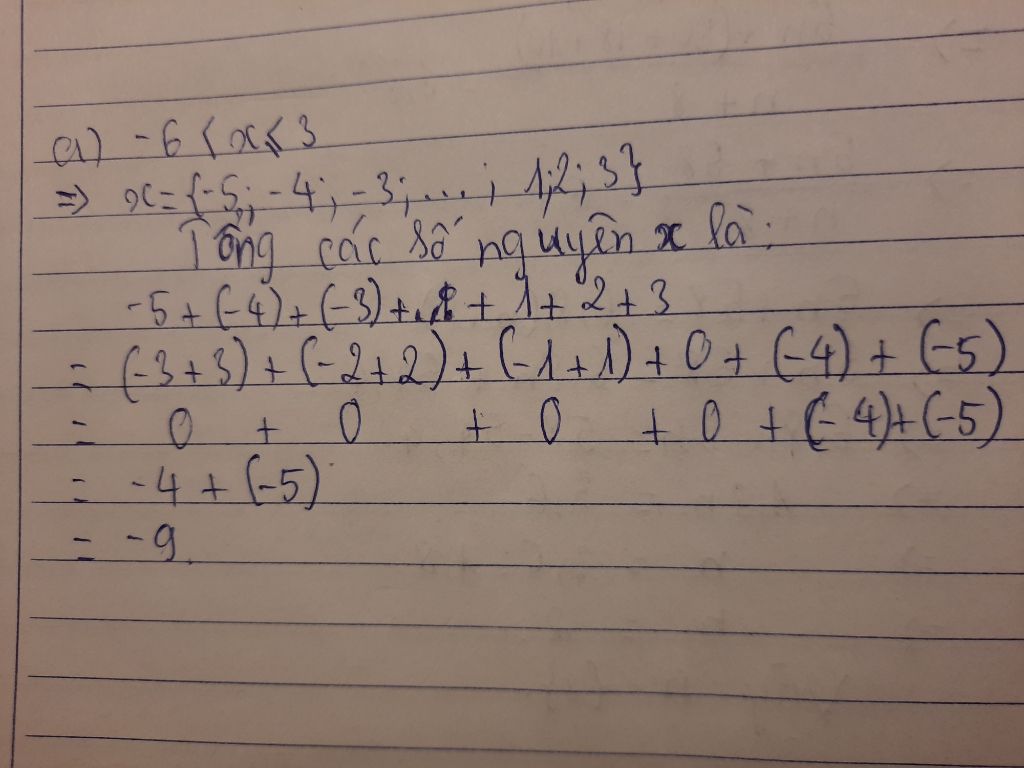 a) -6 < x ≤ 3
=> x = {-5; -4; -3; ...; 1; 2; 3}
Tổng các số nguyên x là:
-5 + (-4) + (-3) + ... + 1 + 2 + 3
= (-3+3) + (-2+2) + (-1+1) + 0 + (-4) + (-5)
= 0 + 0 + 0 + 0 + (-4) + (-5)
= -4 + (-5)
= -9.